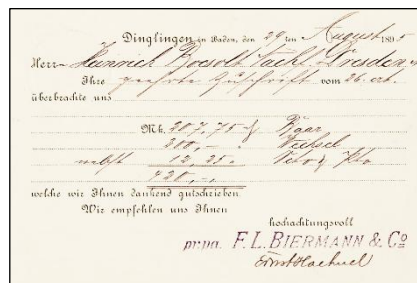 Dinglingen in Baden, den 29 ten August 1895
Herrn Heinrich Dresden
Ihre geehrte Zuschrift vom 26. crt.
überbrachte uns
Mk. 207,75 Baar
200,— Wechsel
nebst 12,25
420,—
welche wir Ihnen dankend gutschrieben.
Wir empfehlen uns Ihnen
hochachtungsvoll
F. L. BIERMANN & Co